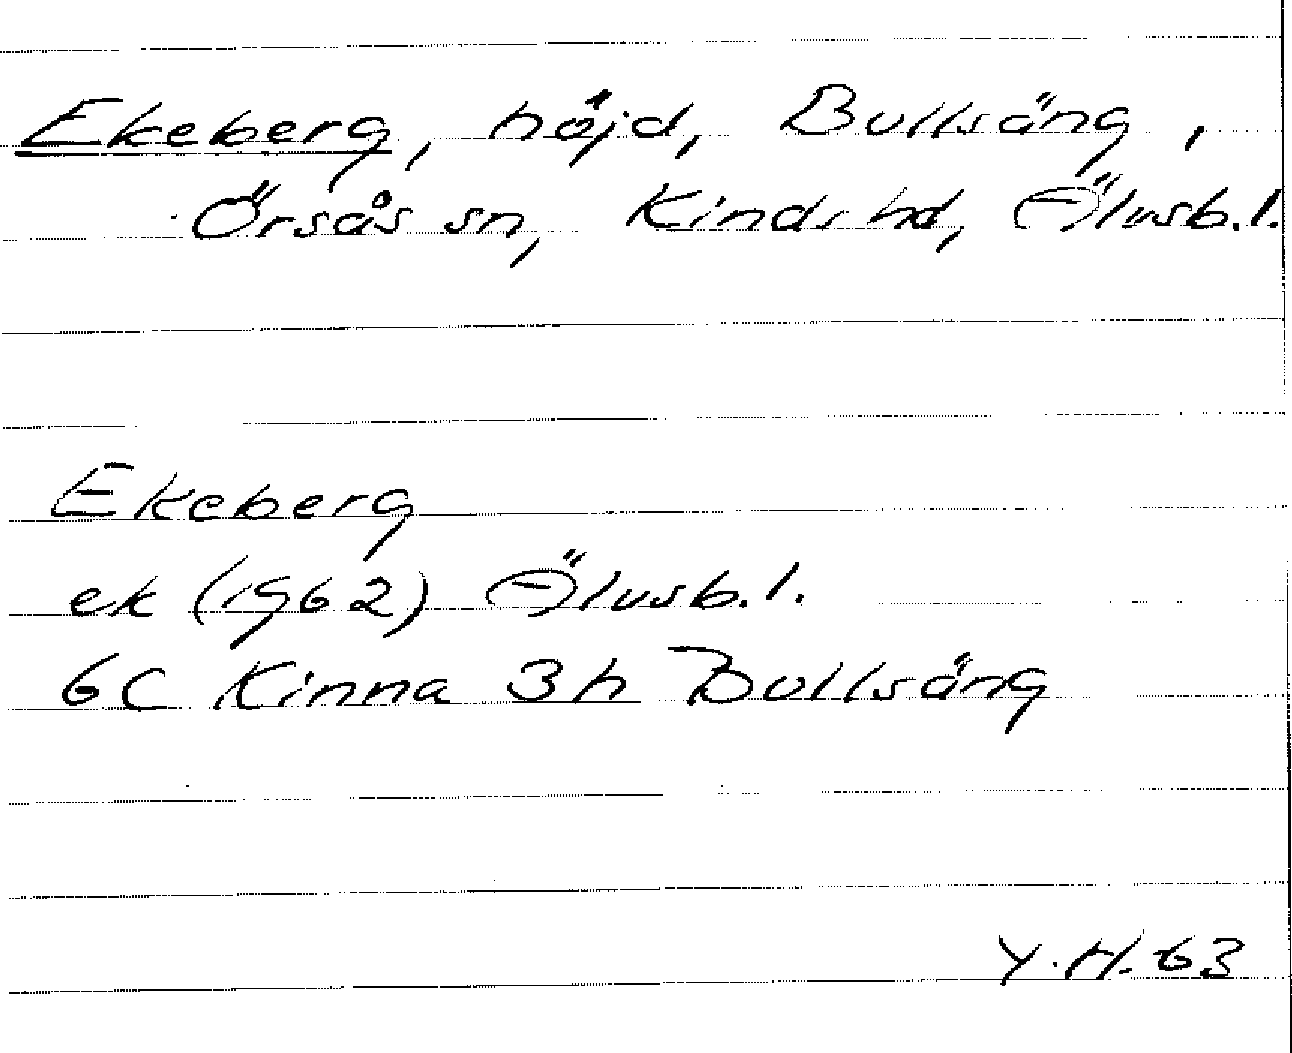 Ekeberg, höjd, Bullsäng,
Örsås sn, Kinds hd, Älvsb.l.
Ekeberg
ek (1962) Älvsb.l.
6C Kinna 3h Bullsäng
Y.H. 63